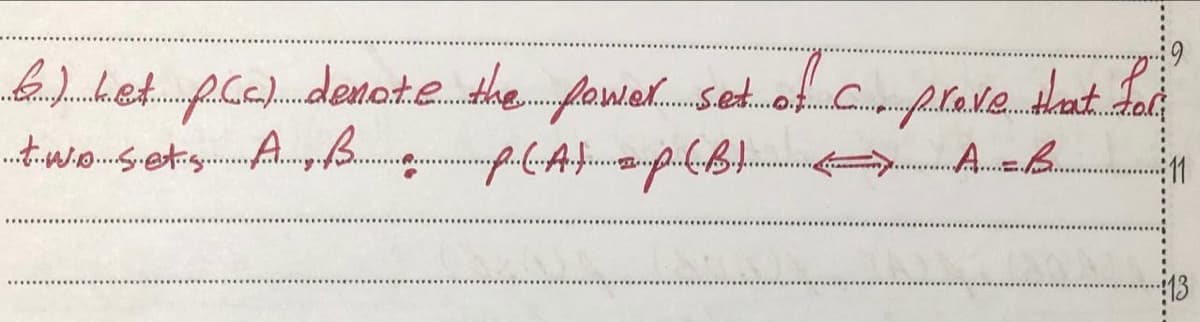 9
6.) Let p(c) denote the power set of c. prove that for
two sets A, B : p(A) = p(B) ⟺ A = B
11
13